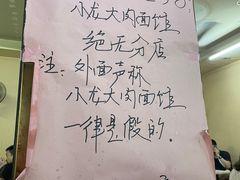 小龙大肉面馆
绝无分店
注：外面声称
小龙大肉面馆
一律是假的.